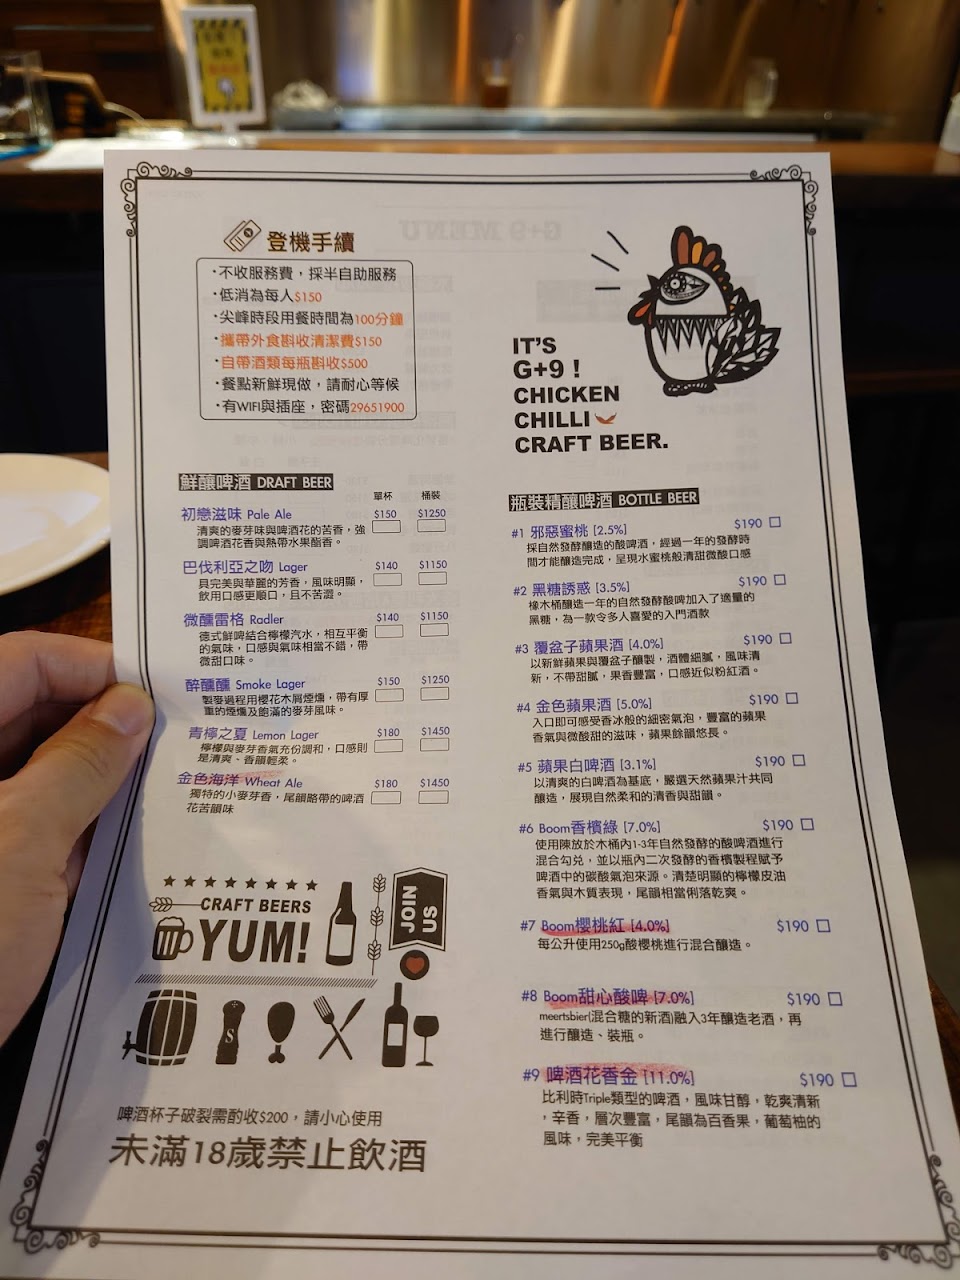 登機手續
・不收服務費，採半自助服務
・低消為每人$150
・尖峰時段用餐時間為100分鐘
・攜帶外食斟收清潔費$150
・自帶酒類每瓶斟收$500
・餐點新鮮現做，請耐心等候
・有WIFI與插座，密碼29651900
IT'S
G+9 !
CHICKEN
CHILLI
CRAFT BEER.
鮮釀啤酒 DRAFT BEER
單杯 桶裝
初戀滋味 Pale Ale $150 $1250
清爽的麥芽味與啤酒花的苦香，強
調啤酒花香與熱帶水果酯香。
巴伐利亞之吻 Lager $140 $1150
具完美與華麗的芳香，風味明顯，
飲用口感更順口，且不苦澀。
微醺雷格 Radler $140 $1150
德式鮮啤結合檸檬汽水，相互平衡
的氣味，口感與氣味相當不錯，帶
微甜口味。
醉醺醺 Smoke Lager $150 $1250
製麥過程用櫻花木屑煙燻，帶有厚
重的煙燻及飽滿的麥芽風味。
青檸之夏 Lemon Lager $180 $1450
檸檬與麥芽香氣充份調和，口感則
是清爽、香韻輕柔。
金色海洋 Wheat Ale $180 $1450
獨特的小麥芽香，尾韻略帶的啤酒
花苦韻味
CRAFT BEERS
YUM!
JOIN
US
S
啤酒杯子破裂需酌收$200，請小心使用
未滿18歲禁止飲酒
瓶裝精釀啤酒 BOTTLE BEER
#1 邪惡蜜桃 [2.5%] $190
採自然發酵釀造的酸啤酒，經過一年的發酵時
間才能釀造完成，呈現水蜜桃般清甜微酸口感
#2 黑糖誘惑 [3.5%] $190
橡木桶釀造一年的自然發酵酸啤加入了適量的
黑糖，為一款令多人喜愛的入門酒款
#3 覆盆子蘋果酒 [4.0%] $190
以新鮮蘋果與覆盆子釀製，酒體細膩，風味清
新，不帶甜膩，果香豐富，口感近似粉紅酒。
#4 金色蘋果酒 [5.0%] $190
入口即可感受香冰般的細密氣泡，豐富的蘋果
香氣與微酸甜的滋味，蘋果餘韻悠長。
#5 蘋果白啤酒 [3.1%] $190
以清爽的白啤酒為基底，嚴選天然蘋果汁共同
釀造，展現自然柔和的清香與甜韻。
#6 Boom香檳綠 [7.0%] $190
使用陳放於木桶內1-3年自然發酵的酸啤酒進行
混合勾兌，並以瓶內二次發酵的香檳製程賦予
啤酒中的碳酸氣泡來源。清楚明顯的檸檬皮油
香氣與木質表現，尾韻相當俐落乾爽。
#7 Boom櫻桃紅 [4.0%] $190
每公升使用250g酸櫻桃進行混合釀造。
#8 Boom甜心酸啤 [7.0%] $190
meertsbier(混合糖的新酒)融入3年釀造老酒，再
進行釀造、裝瓶。
#9 啤酒花香金 [11.0%] $190
比利時Triple類型的啤酒，風味甘醇，乾爽清新
，辛香，層次豐富，尾韻為百香果，葡萄柚的
風味，完美平衡